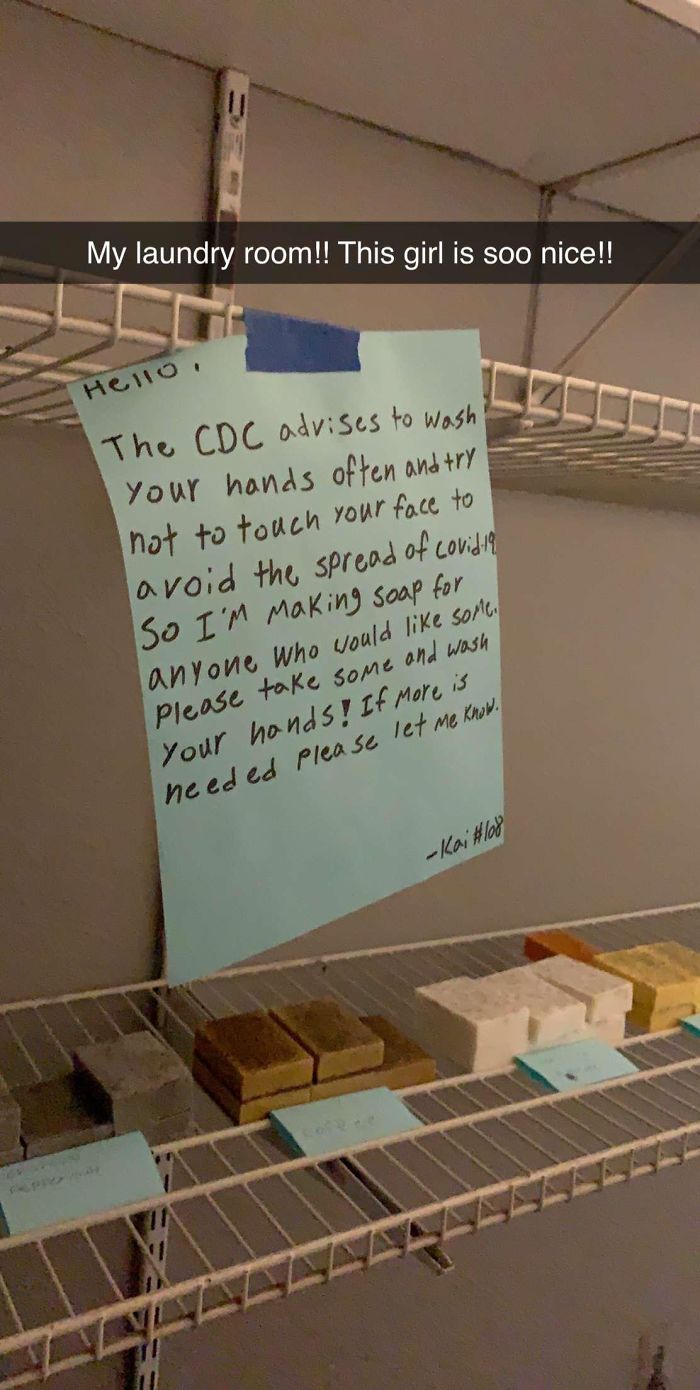 My laundry room!! This girl is soo nice!!
Hello,
The CDC advises to wash
your hands often and try
not to touch your face to
avoid the spread of covid-19
So I'm making soap for
anyone who would like some.
Please take some and wash
your hands! If more is
needed please let me know.
-Kai #108
coffee
peppermint